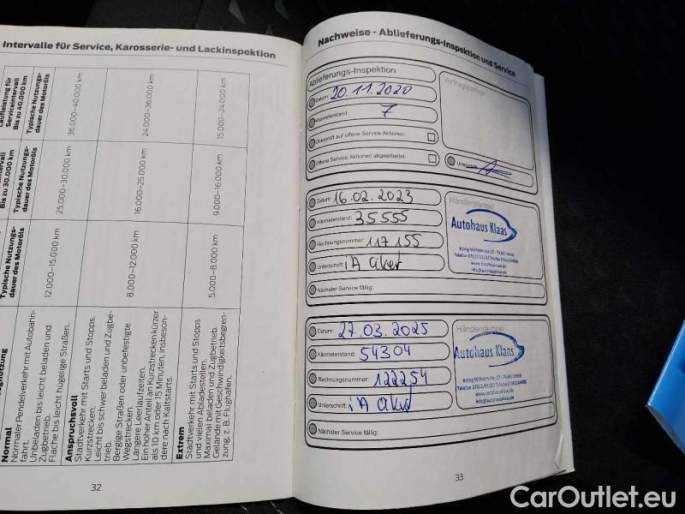 Intervalle für Service, Karosserie- und Lackinspektion
Laufleistung für
Serviceintervall
Bis zu 40.000 km
Typische Nutzungs-
dauer des Motoröls
38.000–40.000 km
24.000–36.000 km
15.000–24.000 km
Bis zu 30.000 km
Typische Nutzungs-
dauer des Motoröls
25.000–30.000 km
16.000–25.000 km
9.000–16.000 km
Typische Nutzungs-
dauer des Motoröls
12.000–15.000 km
8.000–12.000 km
5.000–8.000 km
Normal
Normaler Pendelverkehr mit Autobahn-
fahrt.
Unbeladen bis leicht beladen und
Zugbetrieb.
Fläche bis leicht hügelige Straßen.
Anspruchsvoll
Stadtverkehr mit Starts und Stopps.
Kurzstrecken.
Leicht bis schwer beladen und Zugbe-
trieb.
Bergige Straßen oder unbefestigte
Wegstrecken.
Längere Leerlaufzeiten.
Ein hoher Anteil an Kurzstrecken kürzer
als 10 km oder 15 Minuten, insbeson-
dere nach Kaltstarts.
Extrem
Stadtverkehr mit Starts und Stopps
und vielen Abladestellen.
Maximal beladen und Zugbetrieb.
Gelände mit Geschwindigkeitsbegren-
zung, z. B. Flughäfen.
32
Nachweise - Ablieferungs-Inspektion und Service
Ablieferungs-Inspektion
Datum: 20.11.2020
Kilometerstand: 7
Überprüft auf offene Service Aktionen:
Offene Service Aktionen abgearbeitet:
Datum: 16.02.2023
Kilometerstand: 35555
Rechnungsnummer: 117155
Unterschrift: iA
Nächster Service fällig:
Händlerstempel
Autohaus Klaas
Datum: 27.03.2025
Kilometerstand: 54304
Rechnungsnummer: 122254
Unterschrift: iA
Nächster Service fällig:
Händlerstempel
Autohaus Klaas
33
CarOutlet.eu